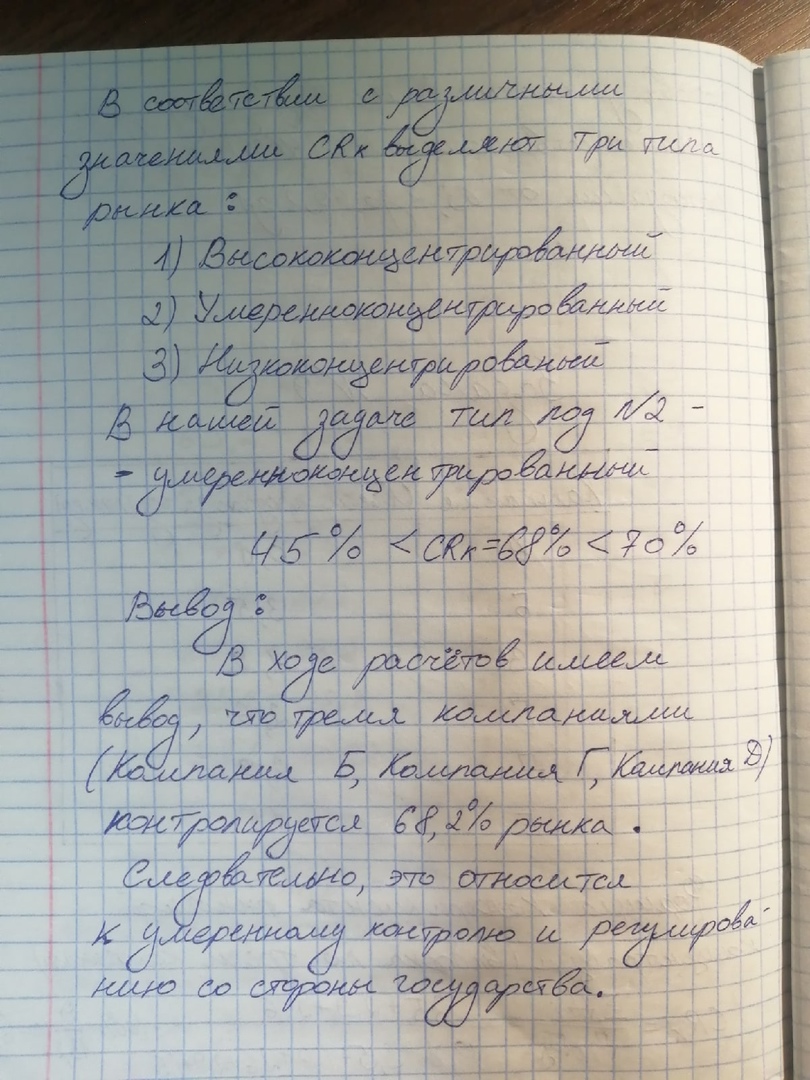 В соответствии с различными
значениями CRк выделяют три типа
рынка:
1) Высококонцентрированный
2) Умеренноконцентрированный
3) Низкоконцентрированый
В нашей задаче тип под №2 -
- умеренноконцентрированный
45% < CRк=68% < 70%
Вывод:
В ходе расчётов имеем
вывод, что тремя компаниями
(Компания Б, Компания Г, Компания Д)
контролируется 68,2% рынка.
Следвательно, это относится
к умеренному контролю и регулирова-
нию со стороны государства.